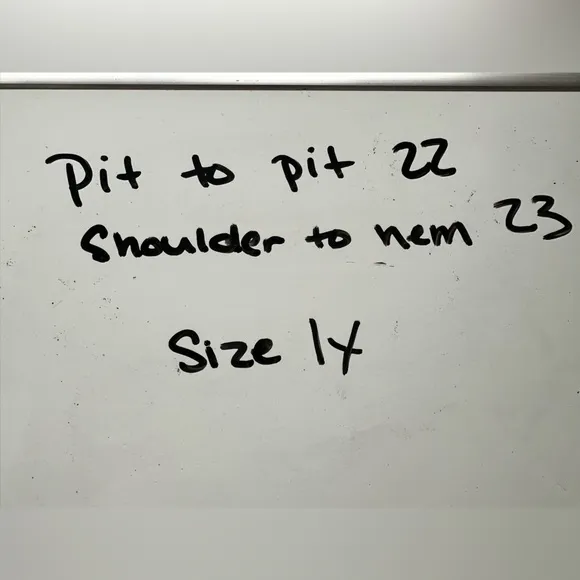 Pit to pit 22
Shoulder to hem 23
Size 1X